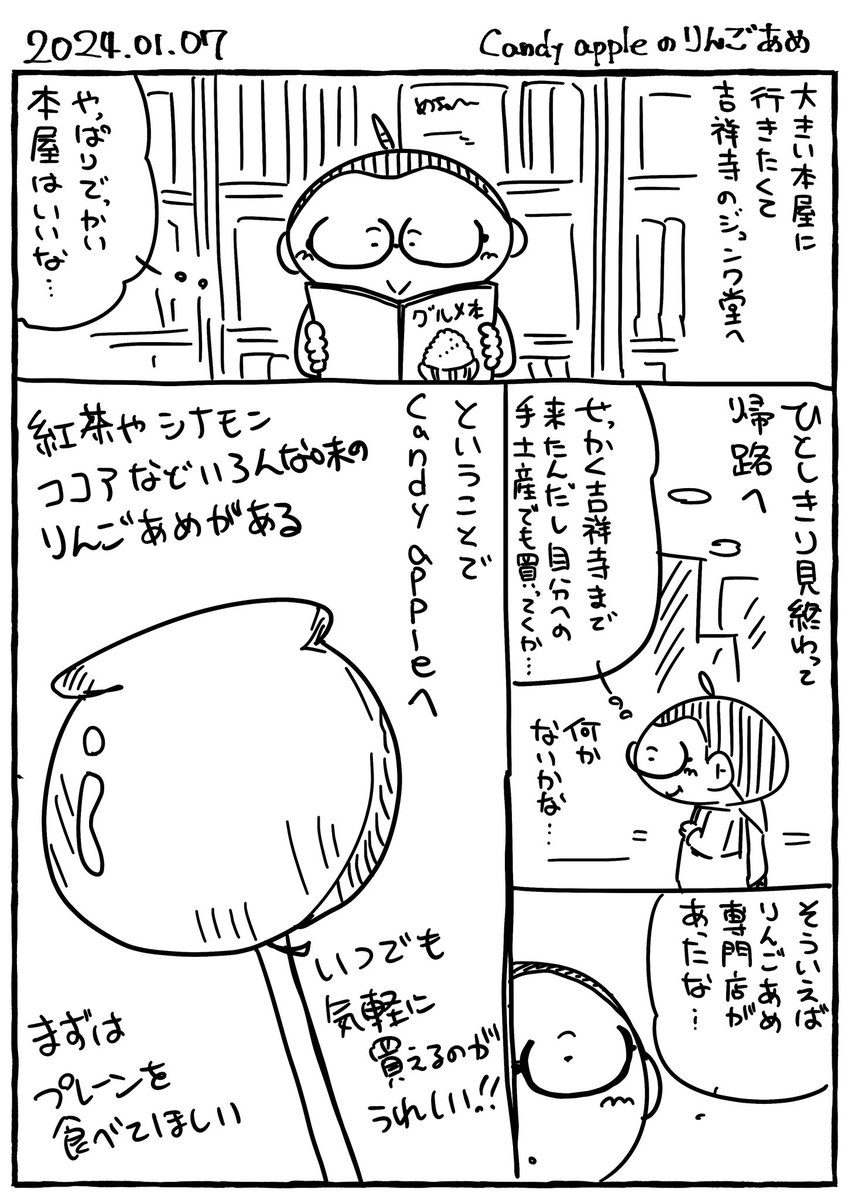 2024.01.07
Candy appleのりんごあめ
大きい本屋に
行きたくて
吉祥寺のジュンク堂へ
グルメ本
やっぱりでっかい
本屋はいいな…
ひとしきり見終わって
帰路へ
せっかく吉祥寺まで
来たんだし自分への
手土産でも買ってくか…
何か
ないかな…
そういえば
りんごあめ
専門店が
あったな…
ということで
Candy appleへ
紅茶やシナモン
ココアなどいろんな味の
りんごあめがある
いつでも
気軽に
買えるのが
うれしい!!
まずは
プレーンを
食べてほしい